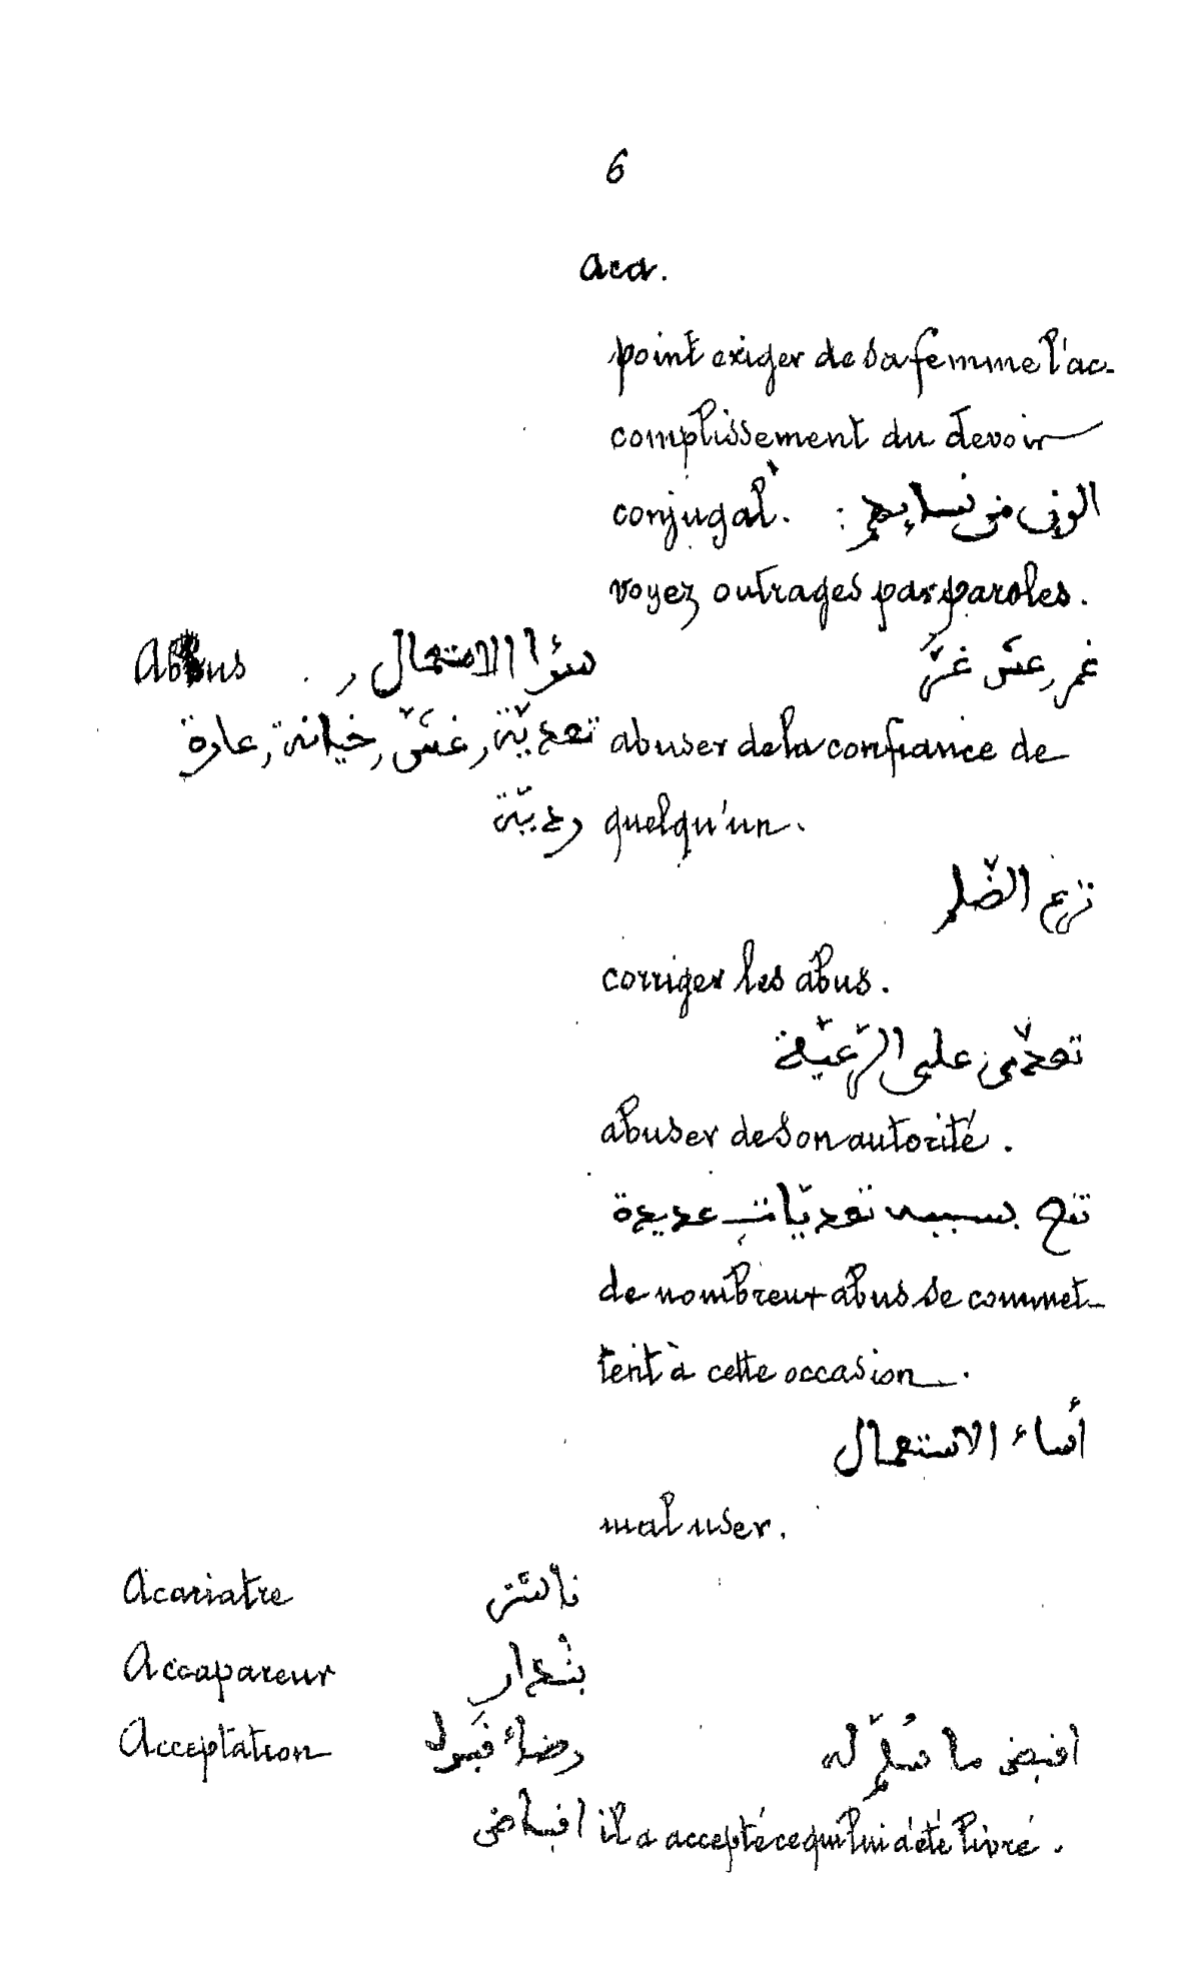 6
aca.
point exiger de sa femme l'ac-
complissement du devoir
conjugal. : من نسايهم
voyez outrages par paroles.
Abus سوٴ الاستعمال, غش غرّ
تعديّة, غشّ, خيانة, عادة abuser de la confiance de
رديّة quelqu'un.
نزع الضّلم
corriger les abus.
تعدّى على الرّعيّة
abuser de son autorité.
نتج بسببه تعديّات عديدة
de nombreux abus se commet-
tent à cette occasion.
أساء الاستعمال
mal user.
Acariatre ناشز
Accapareur
Acceptation رضاء قبول اقبض ما سُلّم له
اقباض il a accepté ce qui lui a été livré.